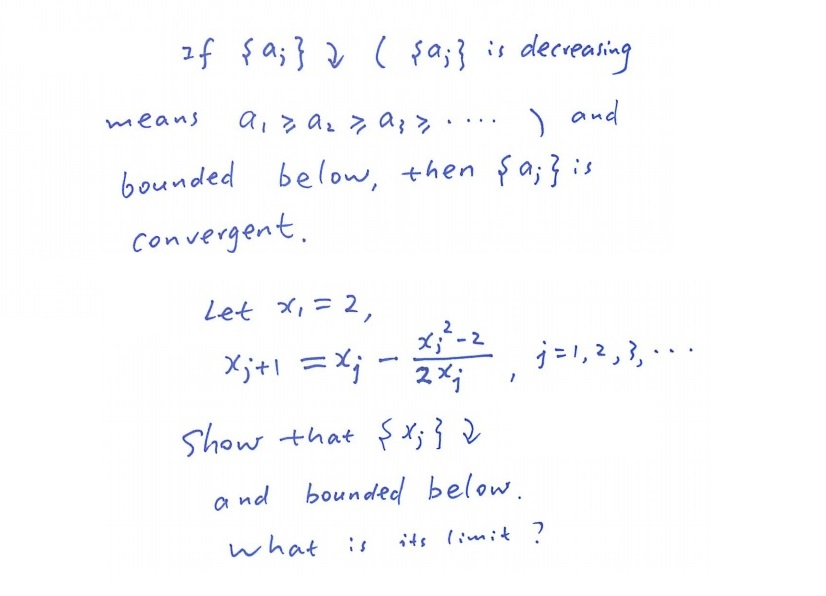 If {aⱼ} ↓ ( {aⱼ} is decreasing
means a₁ ⩾ a₂ ⩾ a₃ ⩾ ..... ) and
bounded below, then {aⱼ} is
convergent.
Let x₁ = 2,
xⱼ₊₁ = xⱼ − (xⱼ² − 2)/(2xⱼ) , j = 1, 2, 3, ...
Show that {xⱼ} ↓
and bounded below.
What is its limit ?